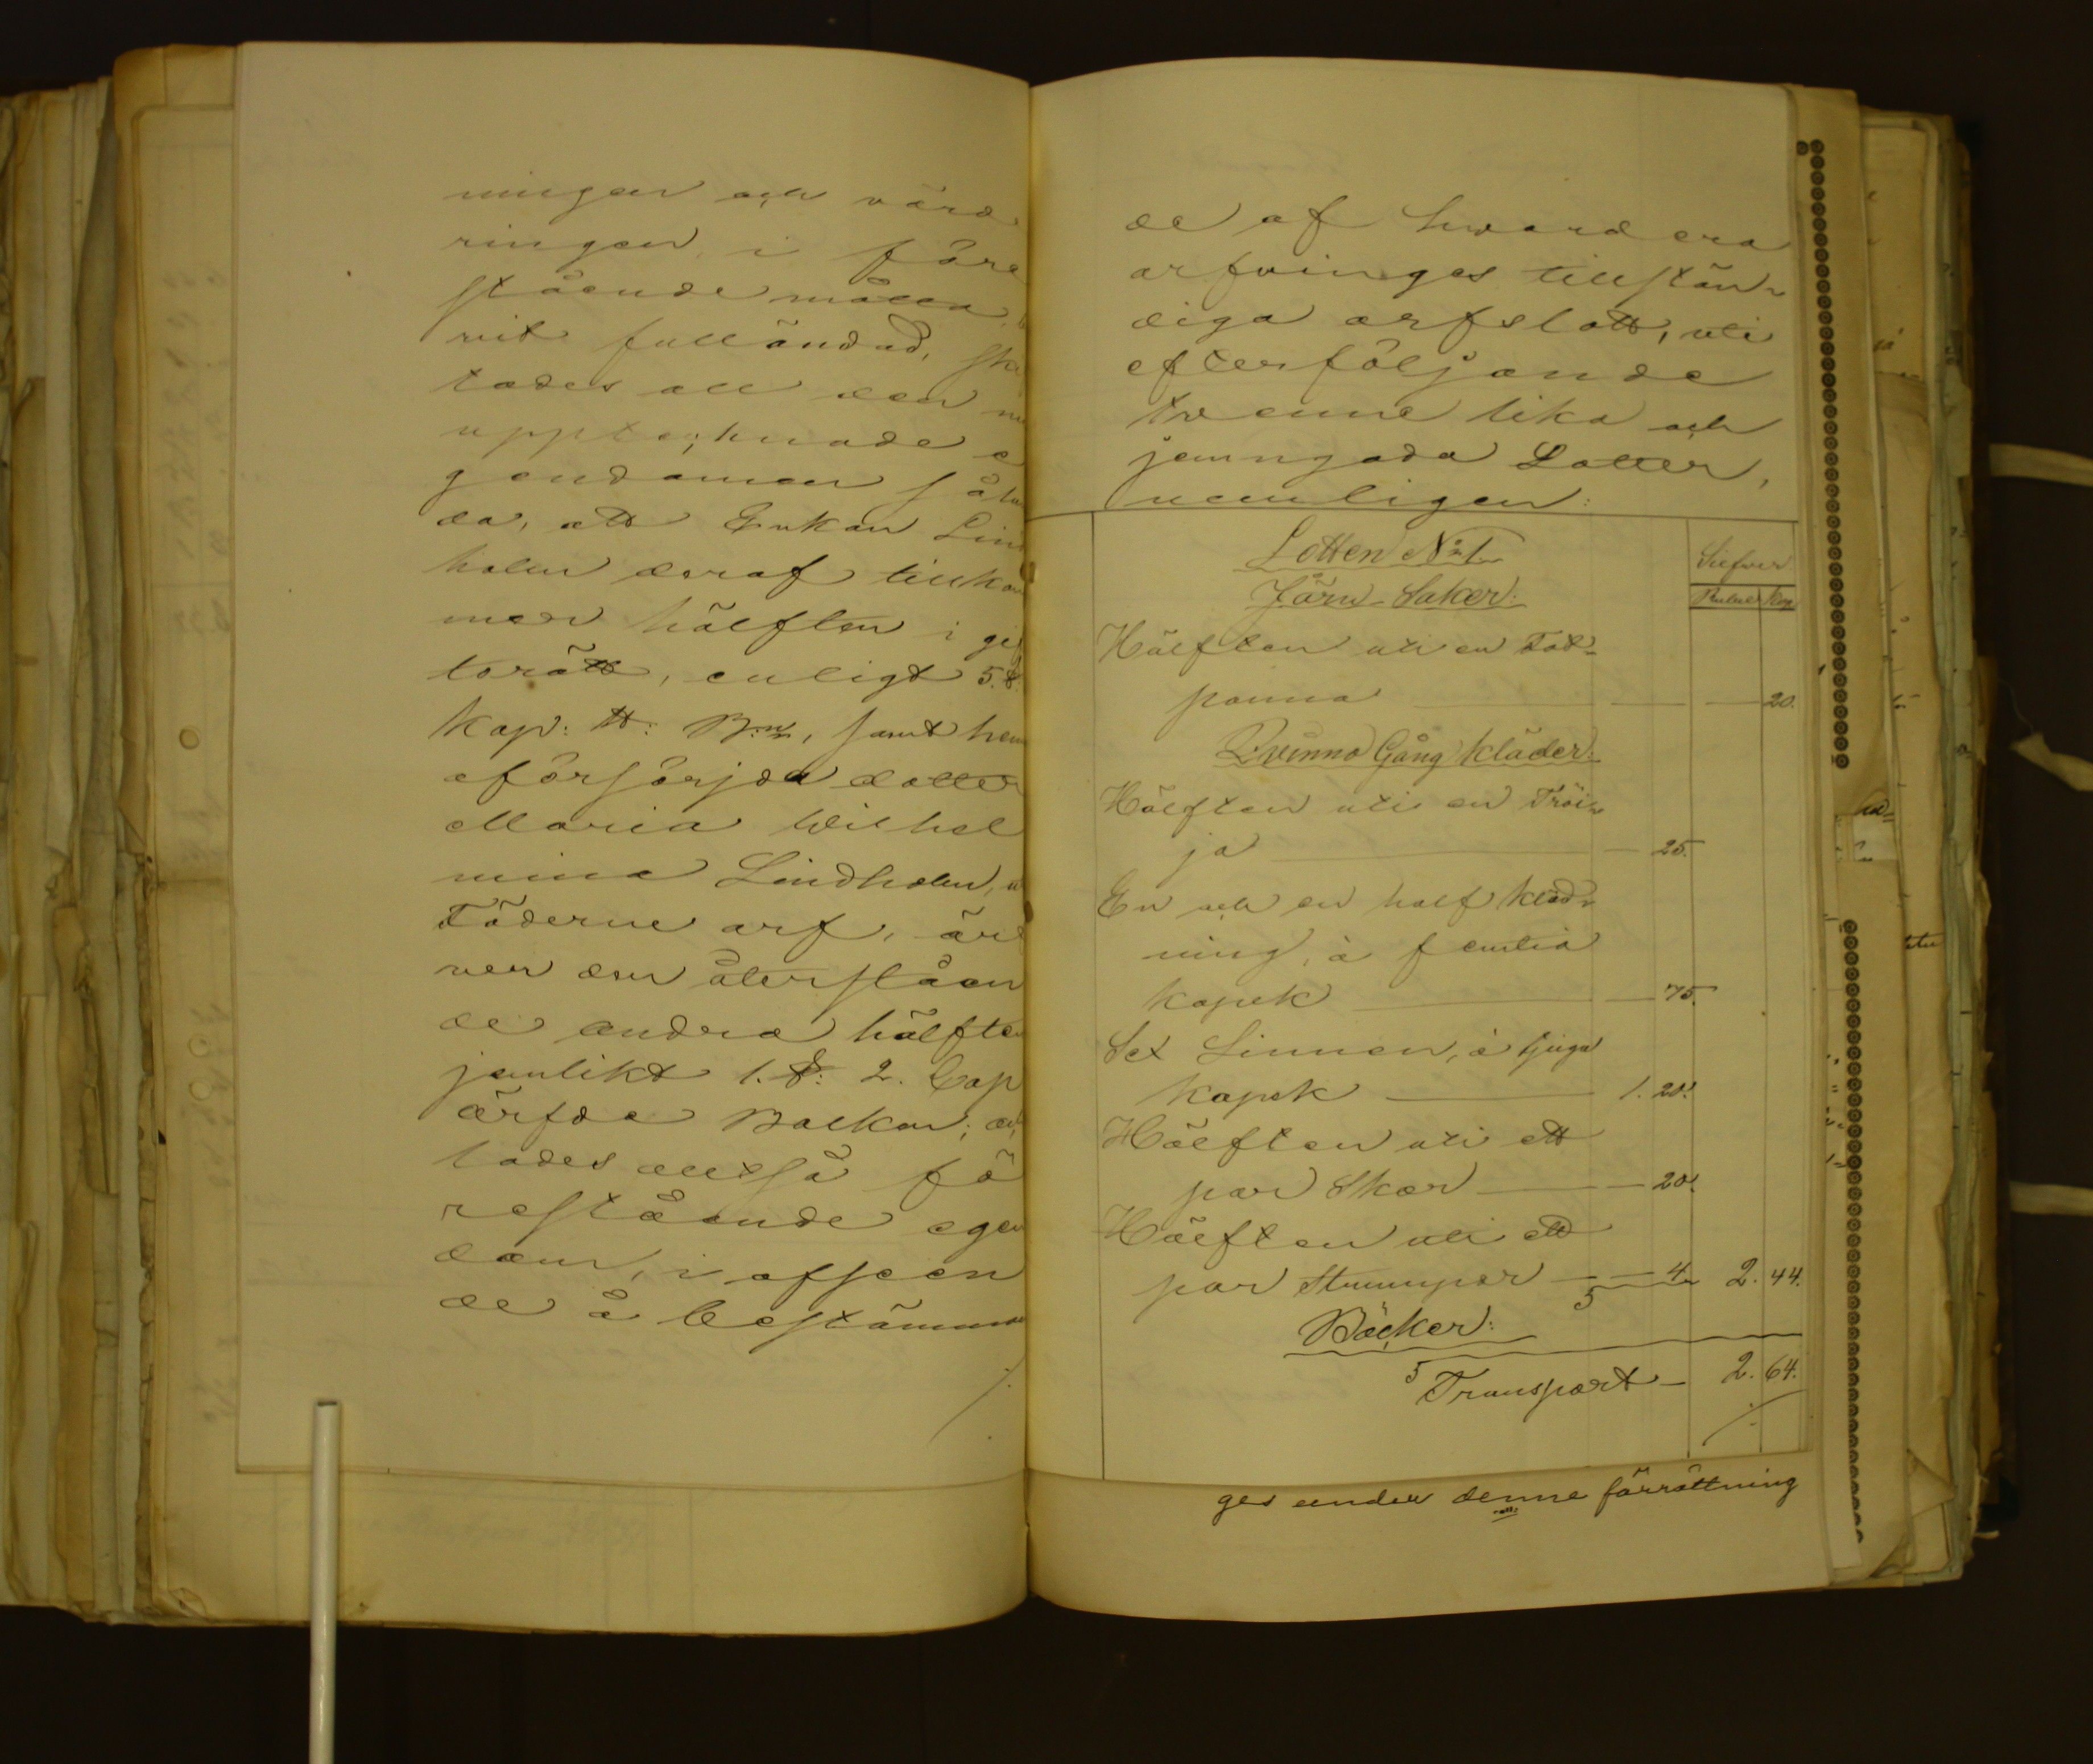 ningen och värde
ringen, i före
stående måtta,
vit fulländad, ski
tades all den nu
upptecknade e
gendomen sålun
da, att Enkan Lind
holm deraf tillkom
mer hälften i gif
torätt, enligt 5. §.
Kap: Bn, samt hen
oförsörjda dotter
Maria Wilhel
mina Lindholm, i
Föderne arf, är
ver den återståen
de andra hälften
jemlikt 1. §: 2. Cap
ärfda Balken;
tades alltså fö
restående egen
dom, i afseen
de å bestämman
de af hvardera
arfvinges tillstän-
diga arfslott, uti
efterföljande
tvenne lika och
jemngoda Lotter,
nemligen:
Lotten No 1.
Silfver
Järn-Saker:
Rubel Kop
Hälften uti en Fot-
panna 20.
Qvinno Gång Kläder:
Hälften uti en Tröi-
ja 25.
En och en half Kläd-
ning, à femtio
kopek 75.
Sex Linnen, à tjugo
kopek 1. 20.
Hälften uti ett
par Skor 20.
Hälften uti ett
par Strumpor 4 2. 44.
Böcker:
Transport 2. 64.
ges under denne förrättning